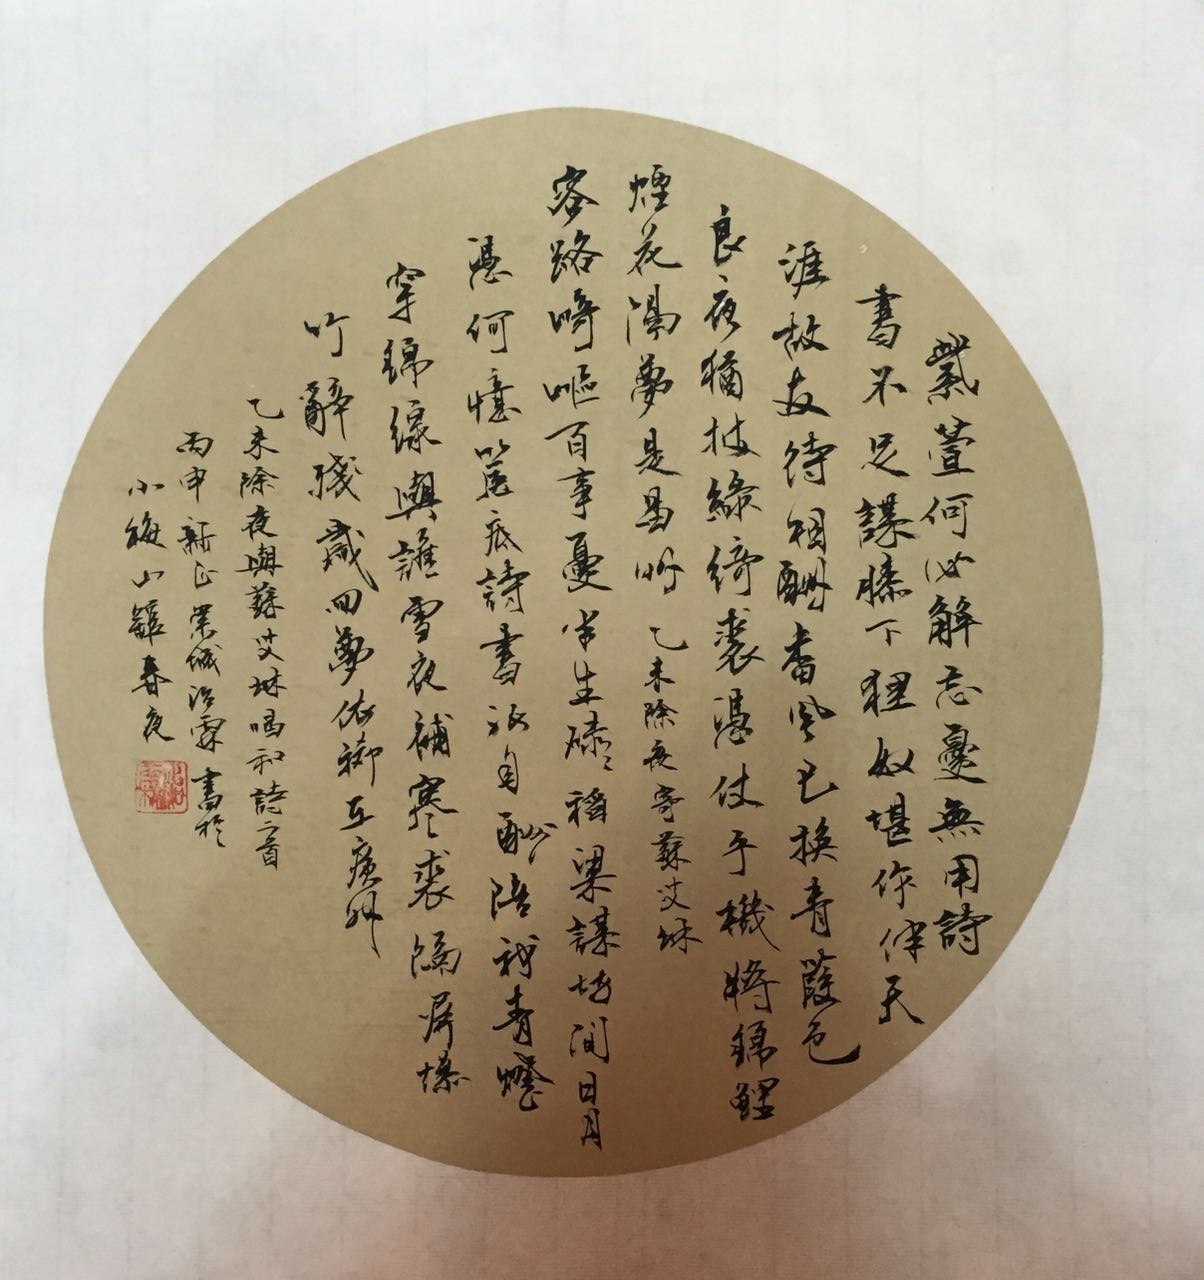 紫萱何必解忘憂無用詩
書不足謀膝下狸奴堪作伴天
涯故友待相酬番風已換青葭色
良夜猶披綠綺裘憑仗手機將錦鯉
煙花隔夢是昌州 乙未除夜寄蘇艾琳
客路崎嶇百事憂半生碌碌稻粱謀坊間日月
憑何憶篋底詩書祇自酬陪我青燈
穿錦線與誰雪夜補寒裘隔屏爆
竹辭殘歲回夢依稀
乙未除夜與蘇艾琳唱和詩二首
丙申新正榮城治霖書於
小梅山館春夜